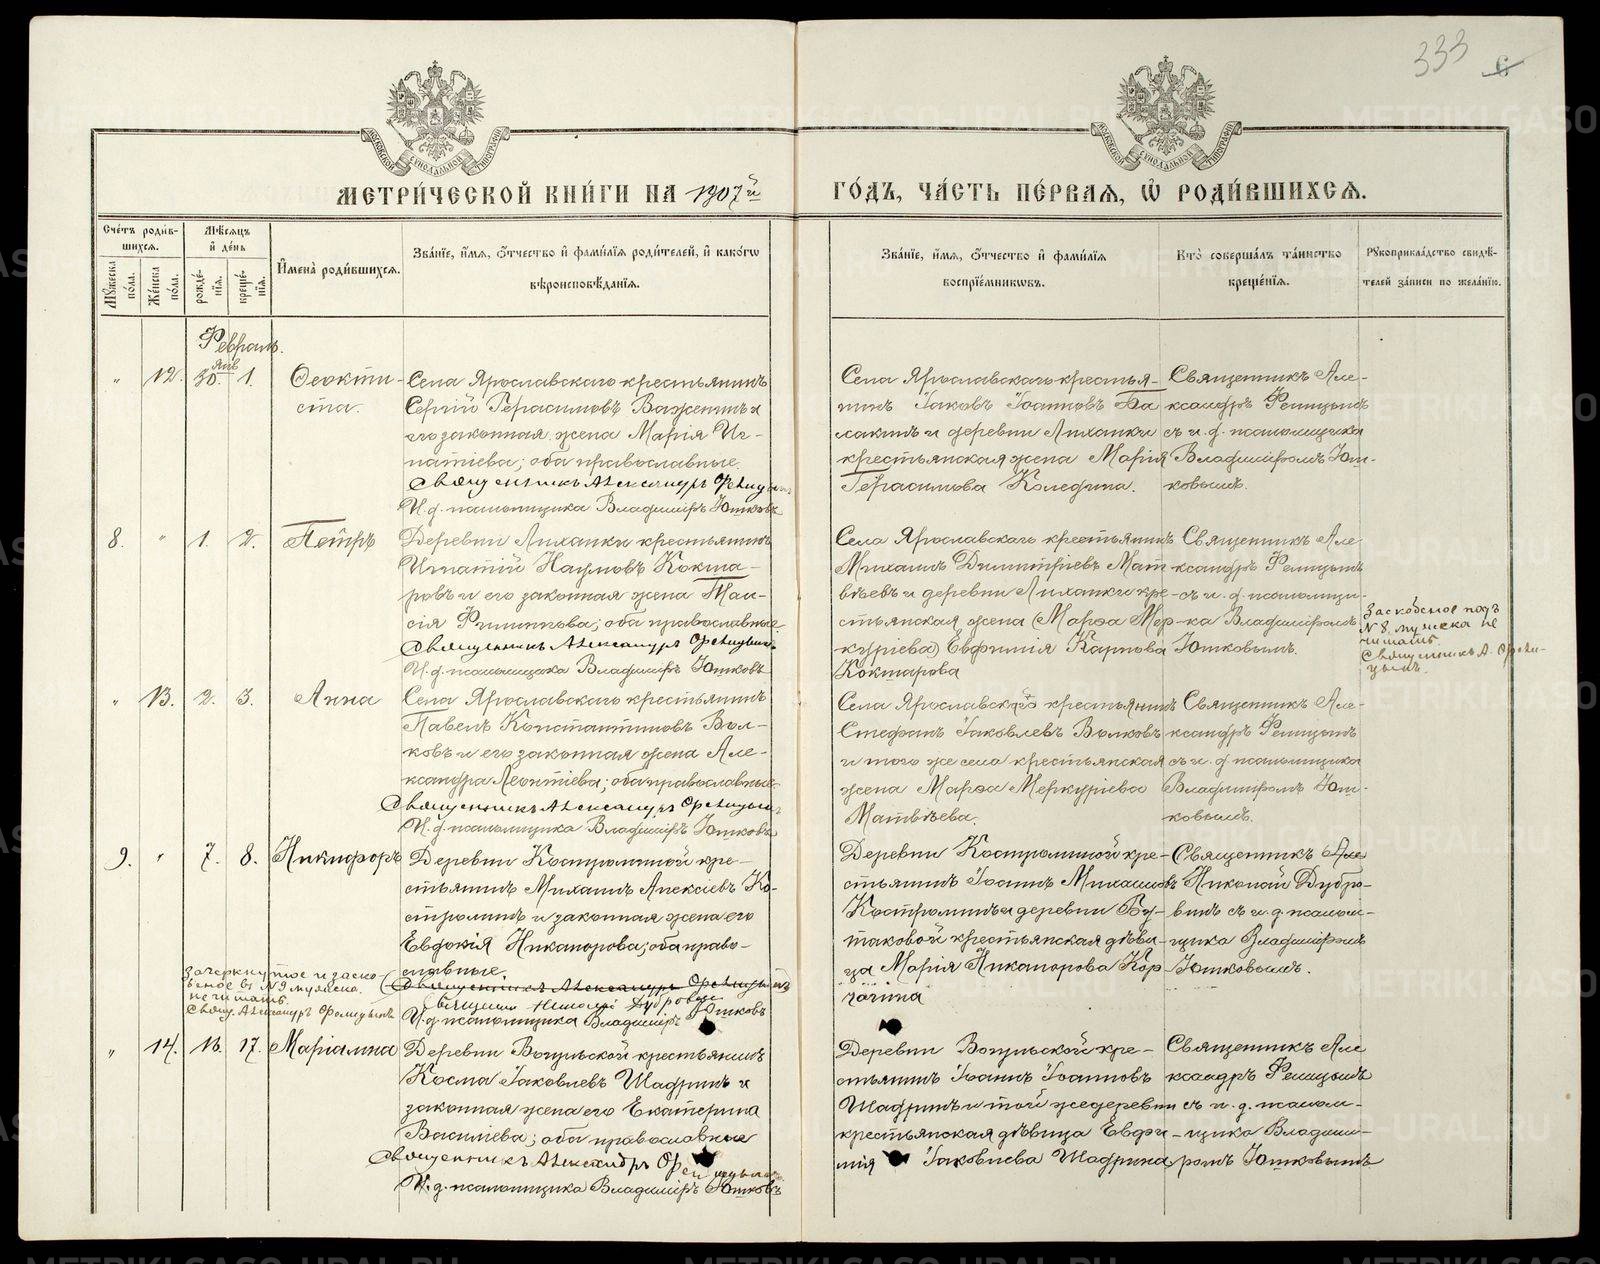 333
МЕТРИ́ЧЕСКОЙ КНИ́ГИ НА 1907й ГО́ДЪ, ЧА́СТЬ ПЕ́РВАЯ, Ѿ РОДИ́ВШИХСЯ.
Сче́тъ роди́в-
шихся.
Мѣ́сяцъ
и де́нь
Мꙋ́жеска по́ла.
Же́нска по́ла.
рожде́-
нїя.
креще́-
нїя.
И́мена роди́вшихся.
Зва́нїе, и́мя, ѻ́тчество и фами́лїя роди́телей, и како́гѡ
вѣроисповѣ́данїя.
Зва́нїе, и́мя, ѻ́тчество и фами́лїя
воспрїе́мникѡвъ.
Кто̀ соверша́лъ та́инство
креще́нїя.
Рꙋкоприкла́дство свидѣ́-
телей за́писи по жела́нїю.
Февраль.
" 12. янв 30. 1. Ѳеокти-
ста.
Села Ярославскаго крестьянинъ
Сергій Герасимовъ Важенинъ и
его законная жена Марія Иг-
натіева; оба православные.
Священникъ Александръ Фелицынъ
И. д. псаломщика Владиміръ Ютковъ
Села Ярославскаго крестья-
нинъ Іаковъ Іоанновъ Ба
лакинъ и деревни Лиханки
крестьянская жена Марія
Герасимова Коледина.
Священникъ Але-
ксандръ Фелицынъ
съ и. д. псаломщика
Владиміромъ Ют-
ковымъ.
8. " 1. 2. Петръ
Деревни Лиханки крестьянинъ
Игнатій Наумовъ Кокша-
ровъ и его законная жена Таи-
сія Филиппова; оба православные
Священникъ Александръ Фелицынъ
И. д. псаломщика Владиміръ Ютковъ
Села Ярославскаго крестьянинъ
Михаилъ Димитріевъ Мат
вѣевъ и деревни Лиханки кре-
стьянская жена (Марѳа Мер-
куріева) Евфимія Карпова
Кокшарова
Священникъ Але
ксандръ Фелицынъ
съ и. д. псаломщи-
ка Владиміромъ
Ютковымъ.
Заскобочное подъ
N 8, мужска не
читать
Священникъ А. Фели-
цынъ.
" 13. 2. 3. Анна
Села Ярославскаго крестьянинъ
Павелъ Константиновъ Вол-
ковъ и его законная жена Але-
ксандра Леонтіева; оба православные
Священникъ Александръ Фелицынъ
И. д. псаломщика Владиміръ Ютковъ
Села Ярославскаго крестьянинъ
Стефанъ Іаковлевъ Волковъ
и того же села крестьянская
жена Марѳа Меркуріева
Матвѣева.
Священникъ Але-
ксандръ Фелицынъ
съ и. д. псаломщика
Владиміромъ Ют-
ковымъ.
9. " 7. 8. Никифоръ
Деревни Костроминой кре-
стьянинъ Михаилъ Алексіевъ Ко-
строминъ и законная жена его
Евдокія Никанорова; оба право-
славные.
Священникъ Александръ Фелицынъ
Священникъ Николай Дубровинъ
И. д. псаломщика Владиміръ Ютковъ
Зачеркнутое и заско-
бчное въ N 9 мужска
не читать.
Свящ. Александръ Фелицынъ
Деревни Костроминой кре-
стьянинъ Іоаннъ Михаиловъ
Костроминъ и деревни Бу-
таковой крестьянская дѣви-
ца Марія Никанорова Кор
Священникъ Але
Николай Дубро-
винъ съ и. д. псалом-
щика Владиміромъ
Ютковымъ.
" 14. 16. 17. Маріамна
Деревни Вогульской крестьянинъ
Косма Іаковлевъ Шадринъ и
законная жена его Екатерина
Василіева; оба православные
Священникъ Александръ Фелицынъ
И. д. псаломщика Владиміръ Ютковъ
Деревни Вогульской кре-
стьянинъ Іоаннъ Іоанновъ
Шадринъ и той же деревни
крестьянская дѣвица Евфи-
мія Іаковлева Шадрина
Священникъ Але
ксандръ Фелицынъ
съ и. д. псалом-
щика Владими-
ромъ Ютковымъ